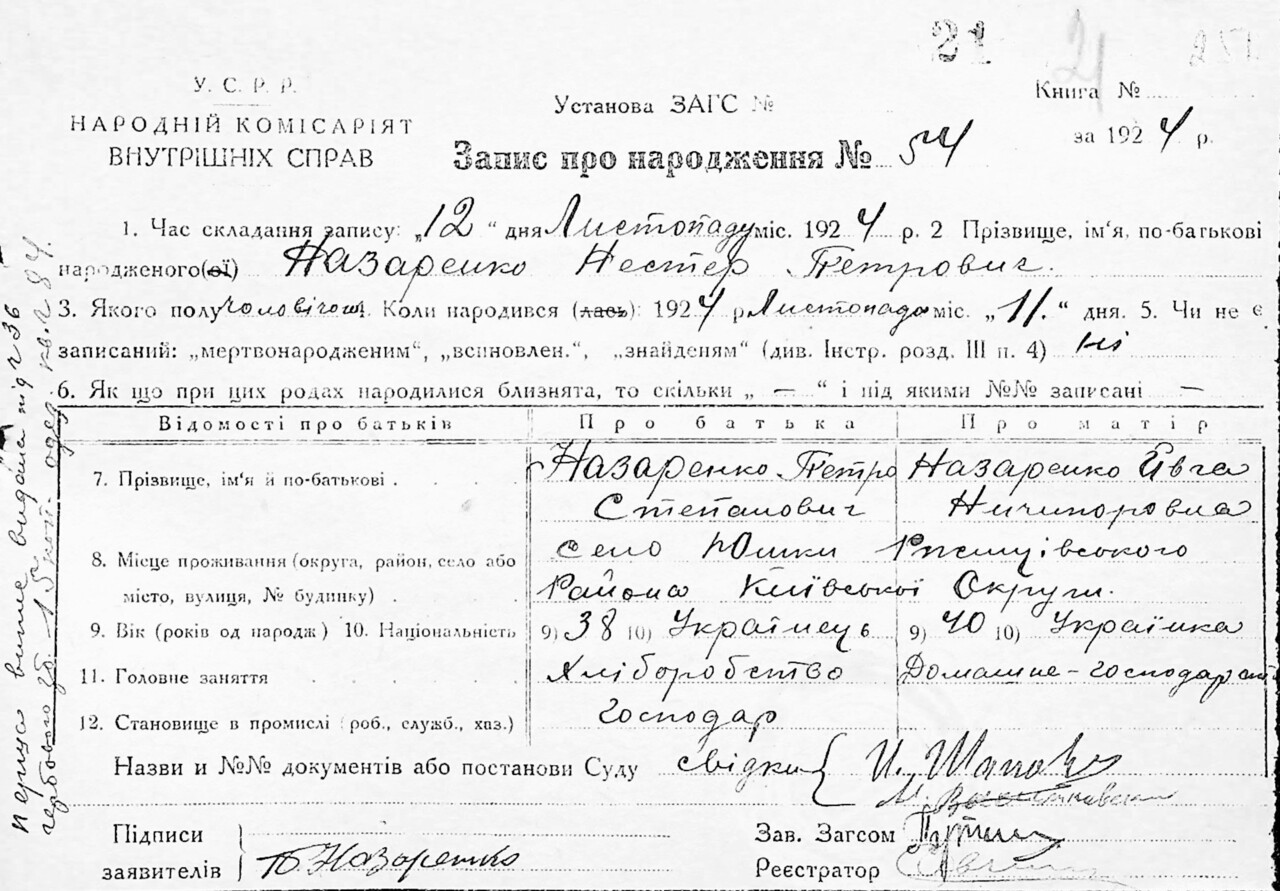 21 21
У. С. Р. Р.
НАРОДНІЙ КОМІСАРІЯТ
ВНУТРІШНІХ СПРАВ
Установа ЗАГС №
Книга №
за 1924 р.
Запис про народження № 54
1. Час складання запису: „12 “ дня Листопаду міс. 1924 р. 2 Прізвище, ім'я, по-батькові
народженого(ої) Назаренко Нестер Петрович.
3. Якого полу чоловічого. Коли народився (лась): 1924 р Листопада міс. „11.“ дня. 5. Чи не є
записаний: „мертвонародженим“, „всиновлен.“, „знайденям“ (див. Інстр. розд. III п. 4) ні
6. Як що при цих родах народилися близнята, то скільки „ — “ і під якими №№ записані —
Відомості про батьків Про батька Про матір
7. Прізвище, ім'я й по-батькові . . . . Назаренко Петро Назаренко Ївга
Степанович Ничипоровна
8. Місце проживання (округа, район, село або село Юшки Ржищівського
місто, вулиця, № будинку) . . Района Київської Округи.
9. Вік (років од народж) 10. Національність 9) 38 10) Українець 9) 40 10) Українка
11. Головне заняття . . . . Хліборобство Домашнє-господарст
12. Становище в промислі (роб., служб., хаз.) Господар
Назви и №№ документів або постанови Суду свідки
Підписи
заявителів П Назаренко
Зав. Загсом
Реєстратор
перша випис видана під ч 36